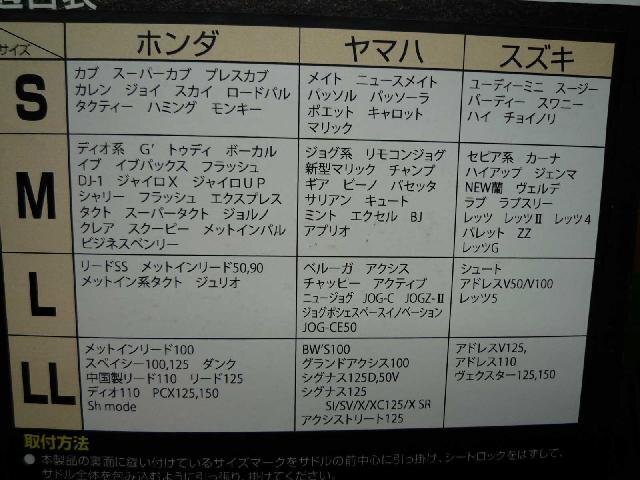 適合表
サイズ
ホンダ
ヤマハ
スズキ
S
カブ　スーパーカブ　プレスカブ
カレン　ジョイ　スカイ　ロードパル
タクティー　ハミング　モンキー
メイト　ニュースメイト
パッソル　パッソーラ
ポエット　キャロット
マリック
ユーディーミニ　スージー
バーディー　スワニー
ハイ　チョイノリ
M
ディオ系　G'　トゥディ　ボーカル
イブ　イブパックス　フラッシュ
DJ-1　ジャイロX　ジャイロUP
シャリー　フラッシュ　エクスプレス
タクト　スーパータクト　ジョルノ
クレア　スクーピー　メットインパル
ビジネスベンリー
ジョグ系　リモコンジョグ
新型マリック　チャンプ
ギア　ビーノ　パセッタ
サリアン　キュート
ミント　エクセル　BJ
アプリオ
セピア系　カーナ
ハイアップ　ジェンマ
NEW蘭　ヴェルデ
ラブ　ラブスリー
レッツ　レッツⅡ　レッツ4
パレット　ZZ
レッツG
L
リードSS　メットインリード50,90
メットイン系タクト　ジュリオ
ベルーガ　アクシス
チャッピー　アクティブ
ニュージョグ　JOG-C　JOGZ-Ⅱ
ジョグポシェスペースイノベーション
JOG-CE50
シュート
アドレスV50/V100
レッツ5
LL
メットインリード100
スペイシー100,125　ダンク
中国製リード110　リード125
ディオ110　PCX125,150
Sh mode
BW'S100
グランドアクシス100
シグナス125D,50V
シグナス125
SI/SV/X/XC125/X SR
アクシストリート125
アドレスV125,
アドレス110
ヴェクスター125,150
取付方法
● 本製品の裏面に縫い付けているサイズマークをサドルの前中心に引っ掛け、シートロックをはずして、
サドル全体を包み込むように引っ張り、掛けてください。